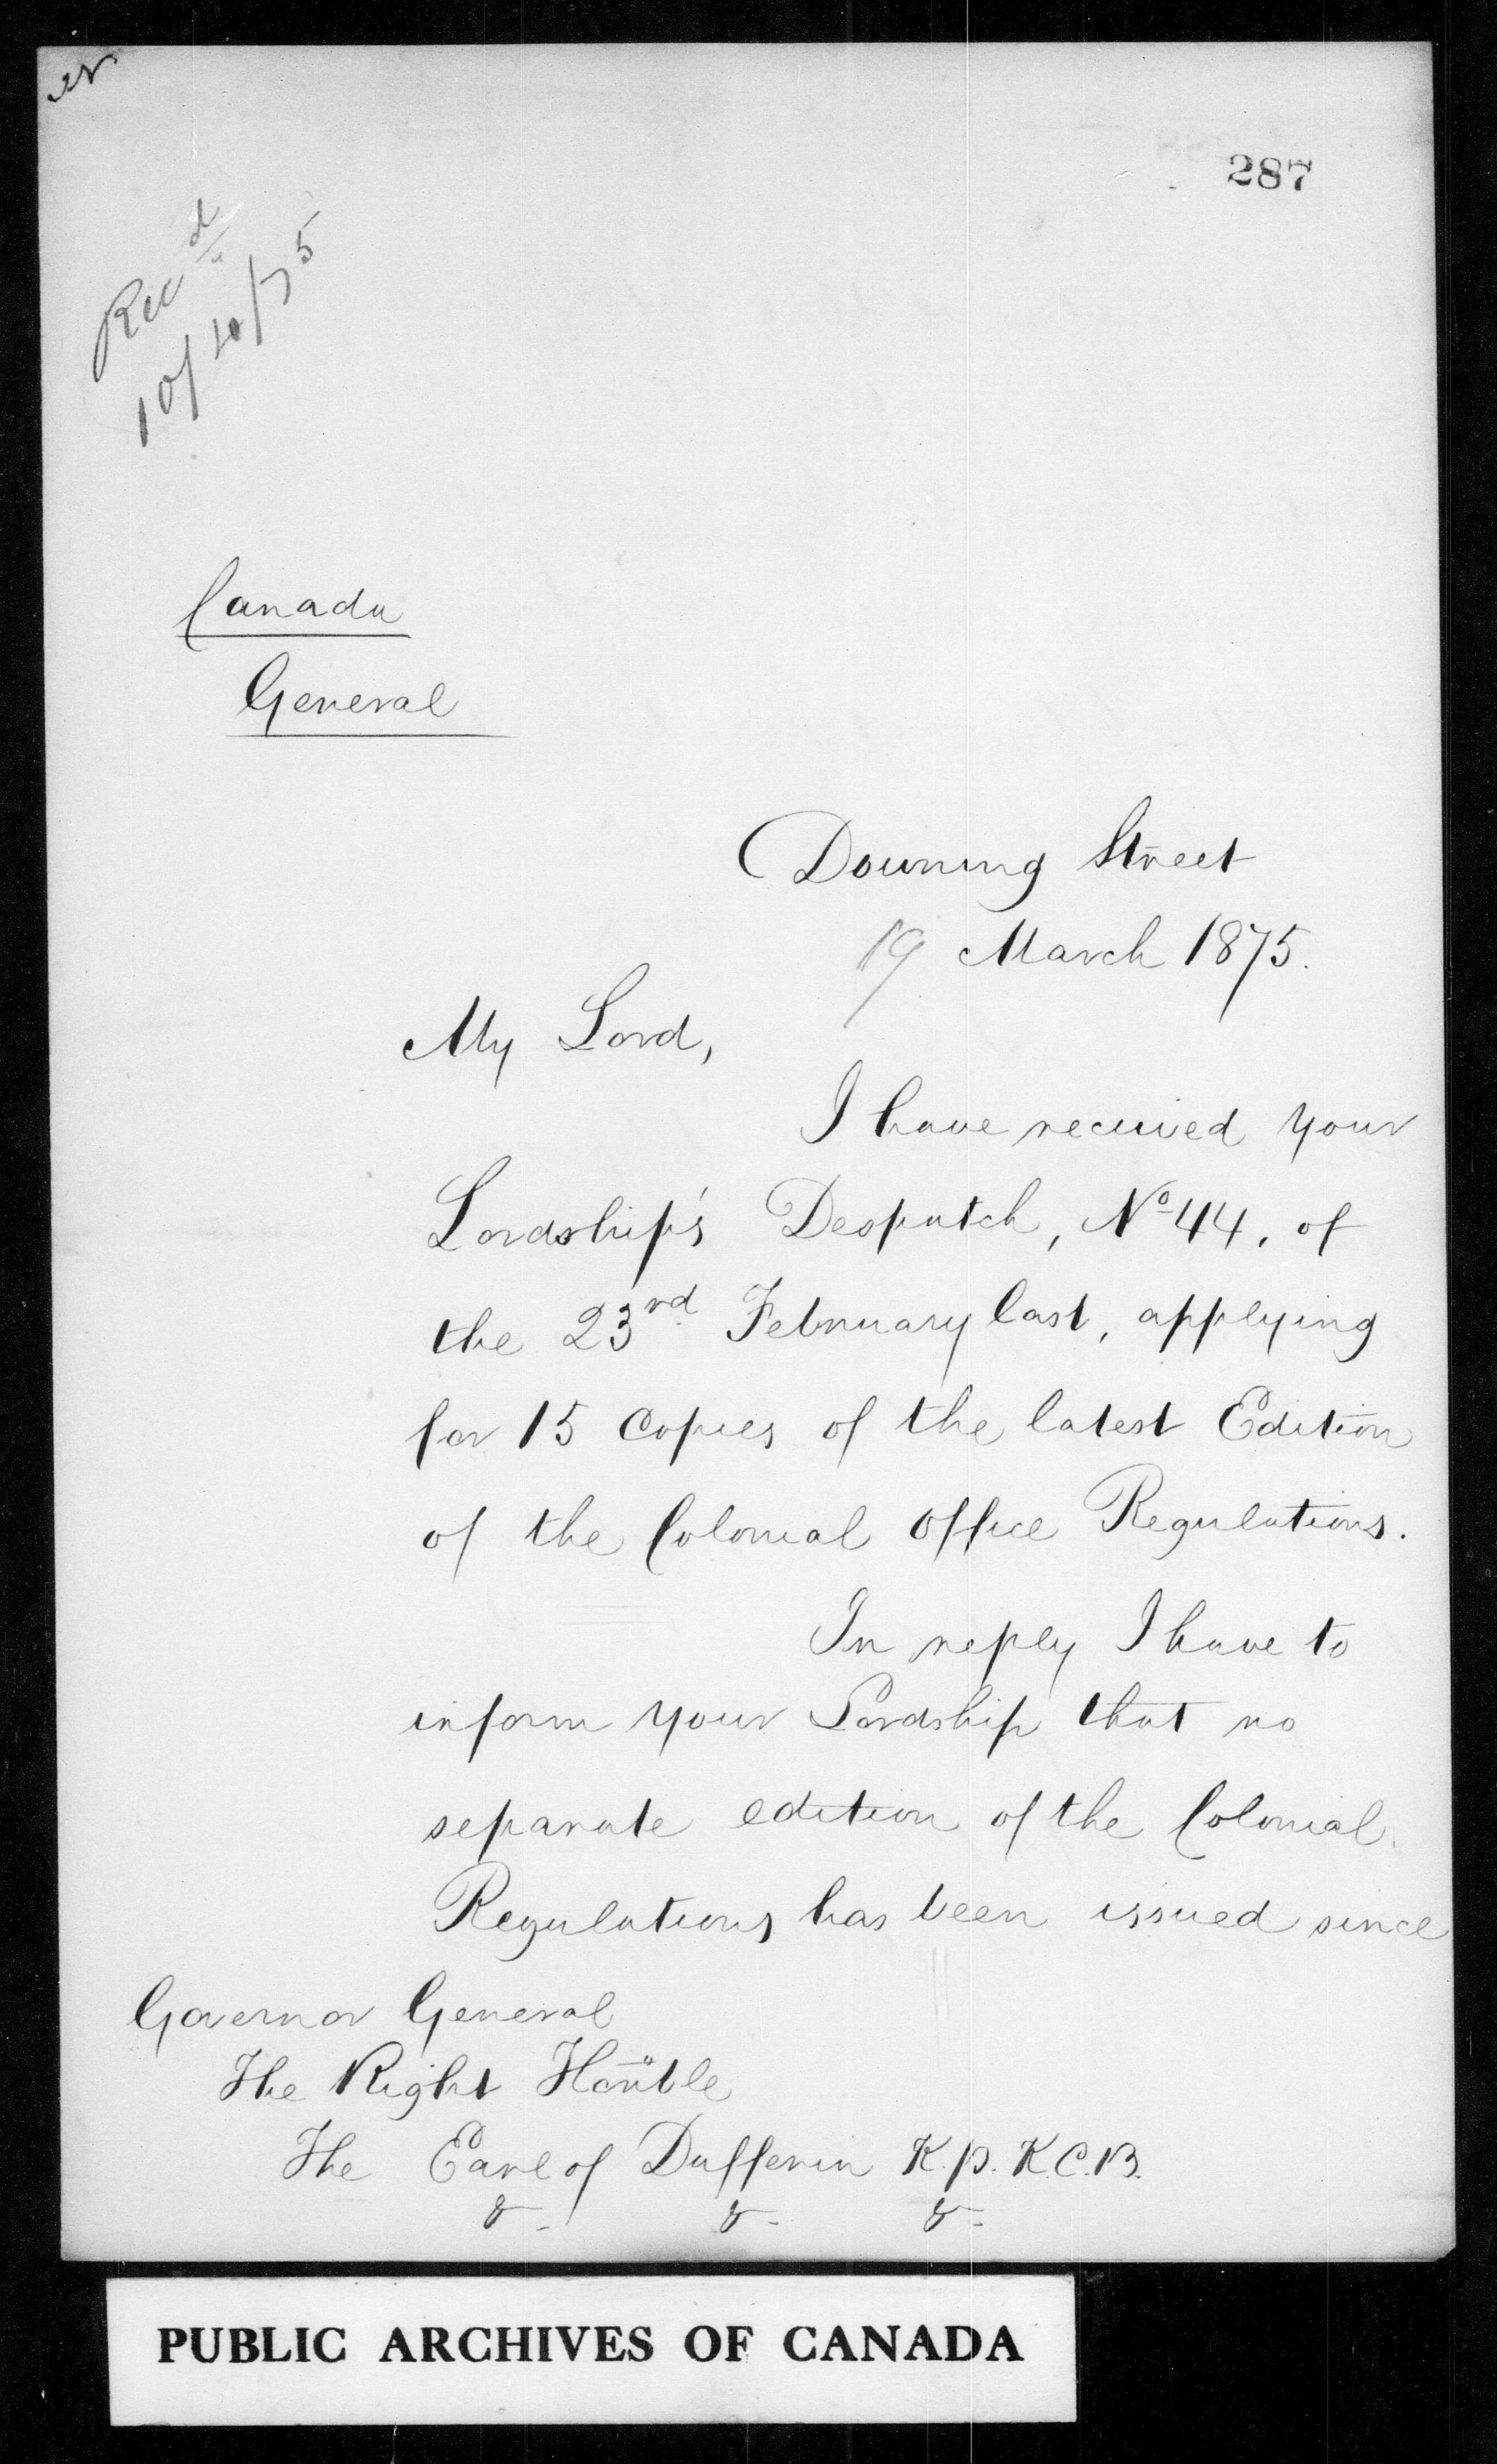 287
Recd
10/4/75
Canada
General
Downing Street
19 March 1875.
My Lord,
I have received your
Lordship's Despatch, No 44, of
the 23rd February last, applying
for 15 Copies of the latest Edition
of the Colonial Office Regulations.
In reply I have to
inform your Lordship that no
separate edition of the Colonial
Regulations has been issued since
Governor General
The Right Honble
The Earl of Dufferin K.P. K.C.B.
& - & - & -
PUBLIC ARCHIVES OF CANADA